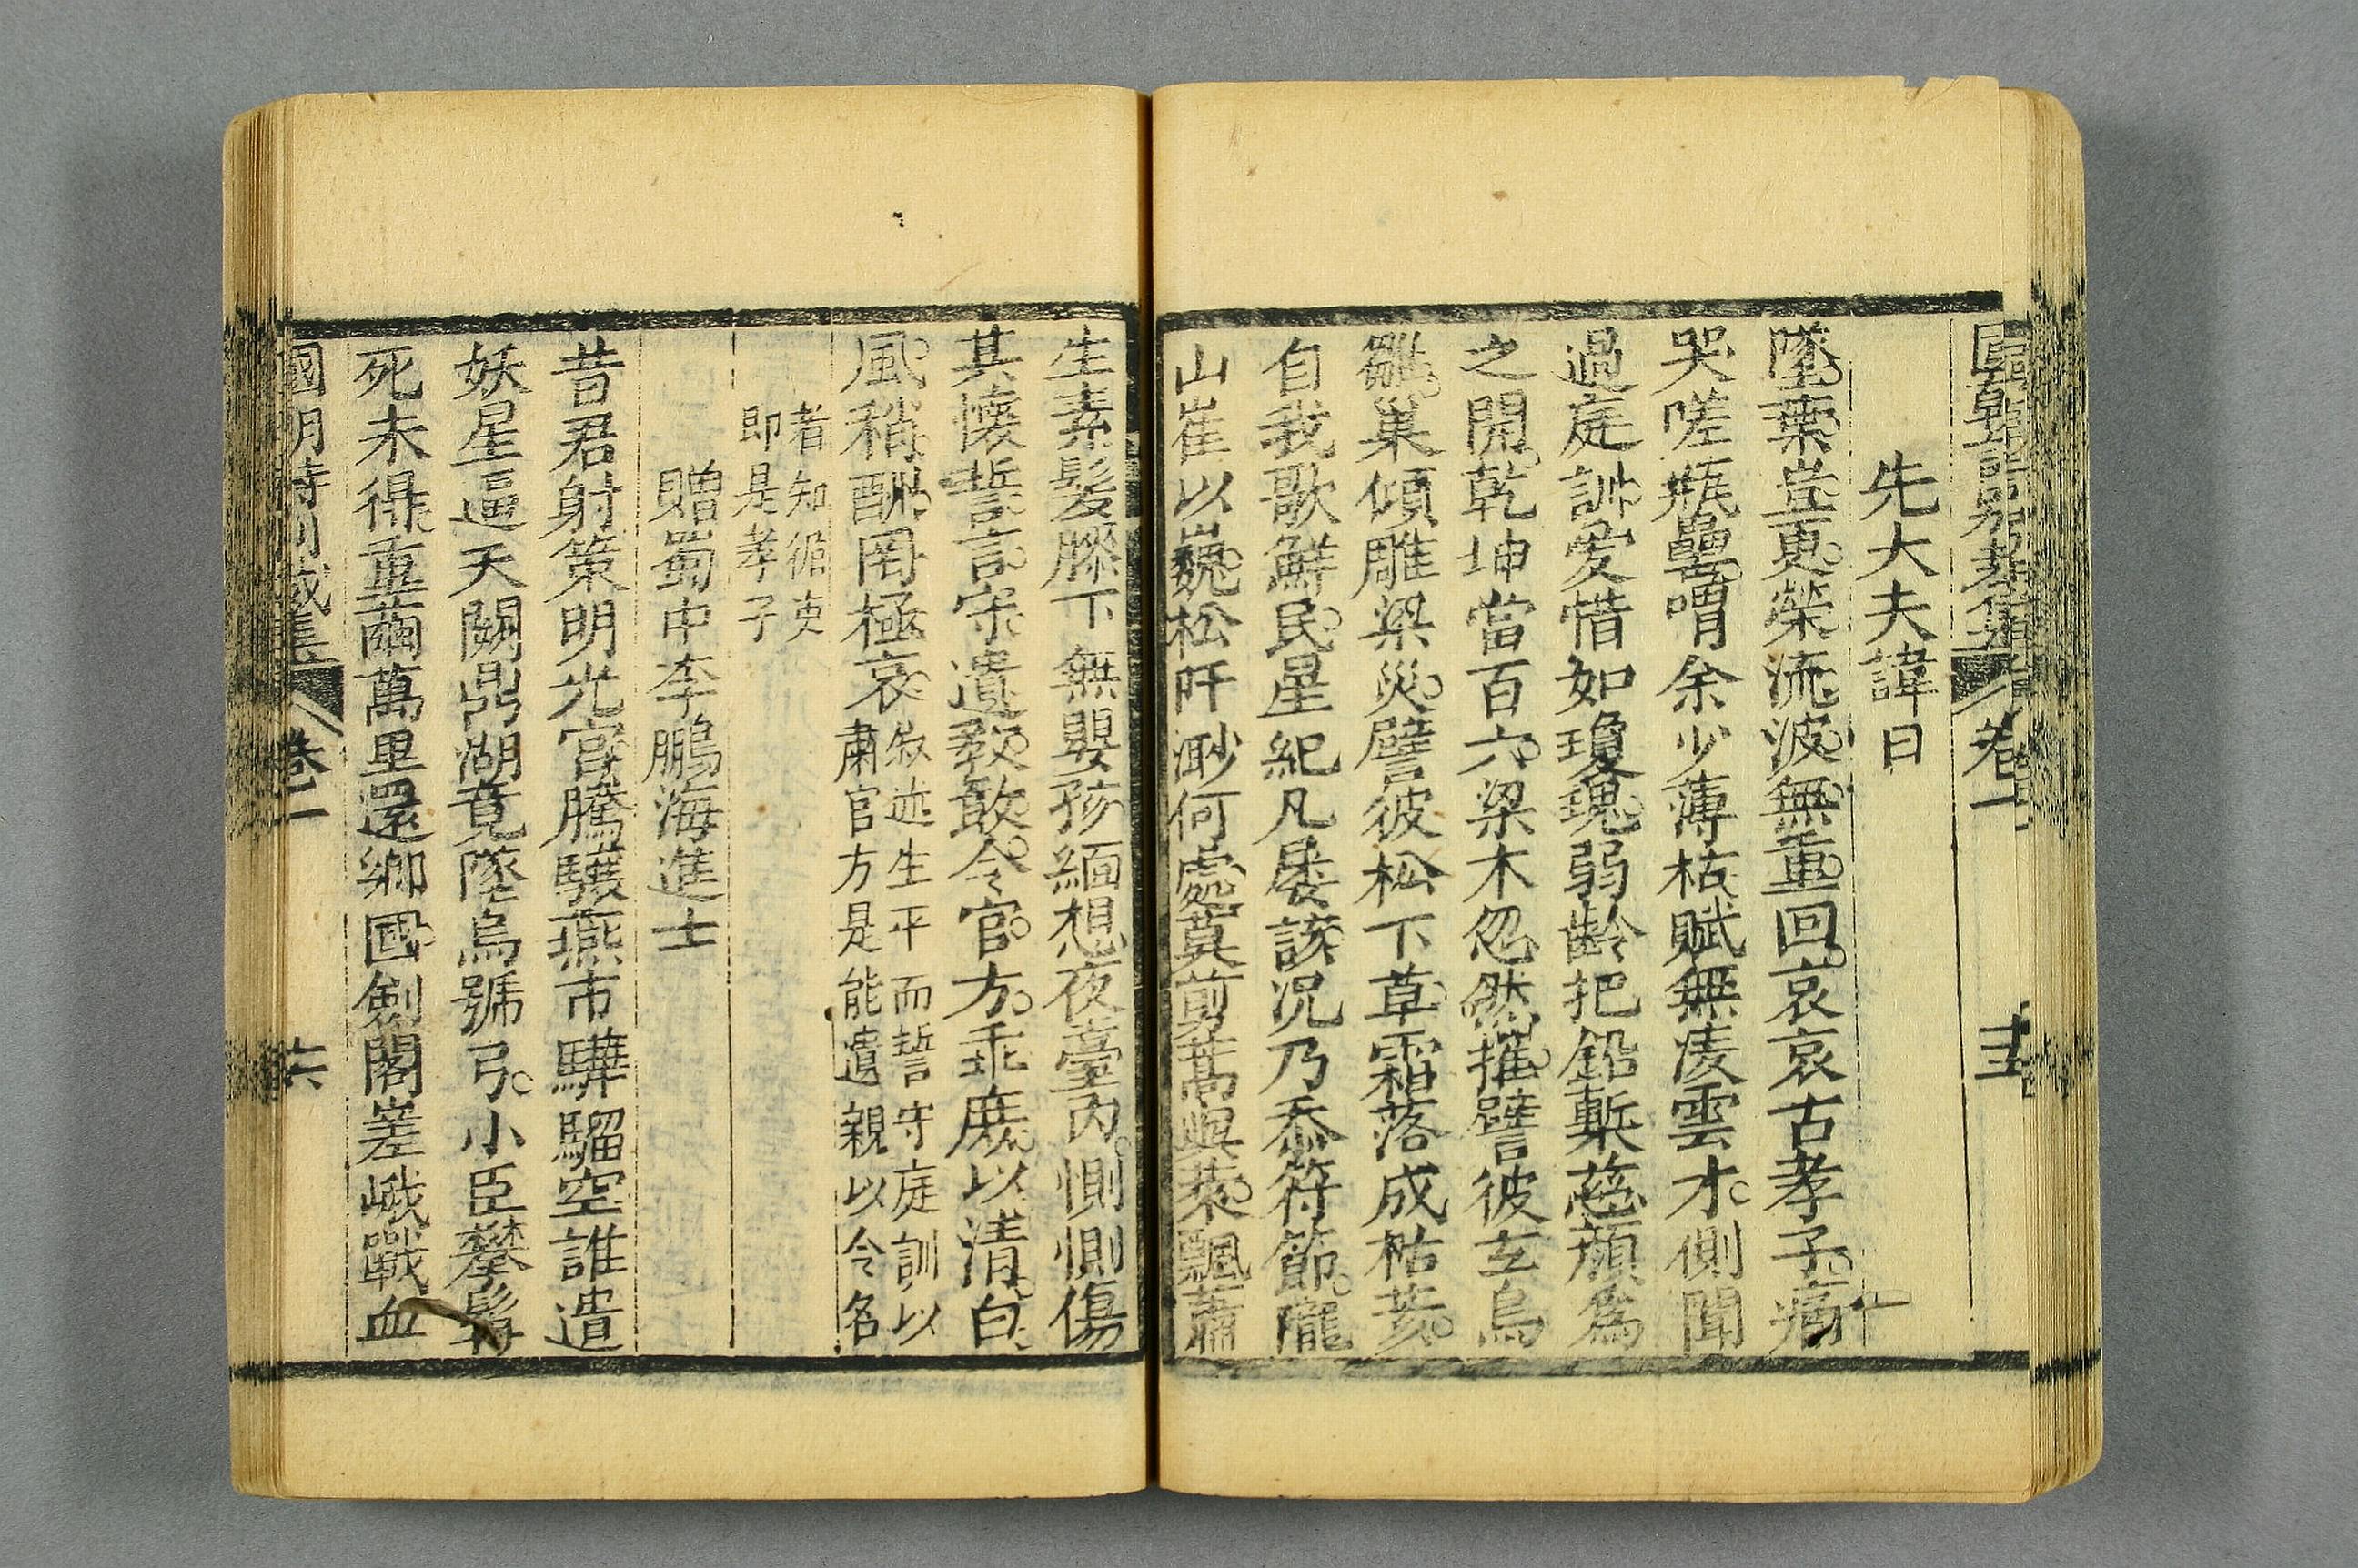 卷一
十五
先大夫諱日
墜葉豈更榮流波無重回哀哀古孝子痛
哭嗟瓶罍喟余少薄枯賦無凌雲才側聞
過庭訓愛惜如瓊瑰弱齡把鉛槧慈顏為
之開乾坤當百六梁木忽然摧譬彼玄鳥
雛巢傾雕梁災譬彼松下草霜落成枯荄
自我歌鮮民星紀凡屡該况乃忝符節隴
山崔以巍松阡渺何處莫剪蒿與萊飄蕭
生素髮膝下無嬰孩緬想夜臺內惻惻傷
其懷誓言守遺教敢令官方乖庶以清白
風稍酬罔極哀叙述生平而誓守庭訓以
肅官方是能遺親以令名
者知循吏
即是孝子
贈蜀中李鵬海進士
昔君射策明光宫騰驤燕市驊騮空誰遣
妖星逼天闕鼎湖竟墜烏號弓小臣攀髯
死未得重繭萬里還鄉國劍閣嵳峨戰血
卷二
十六